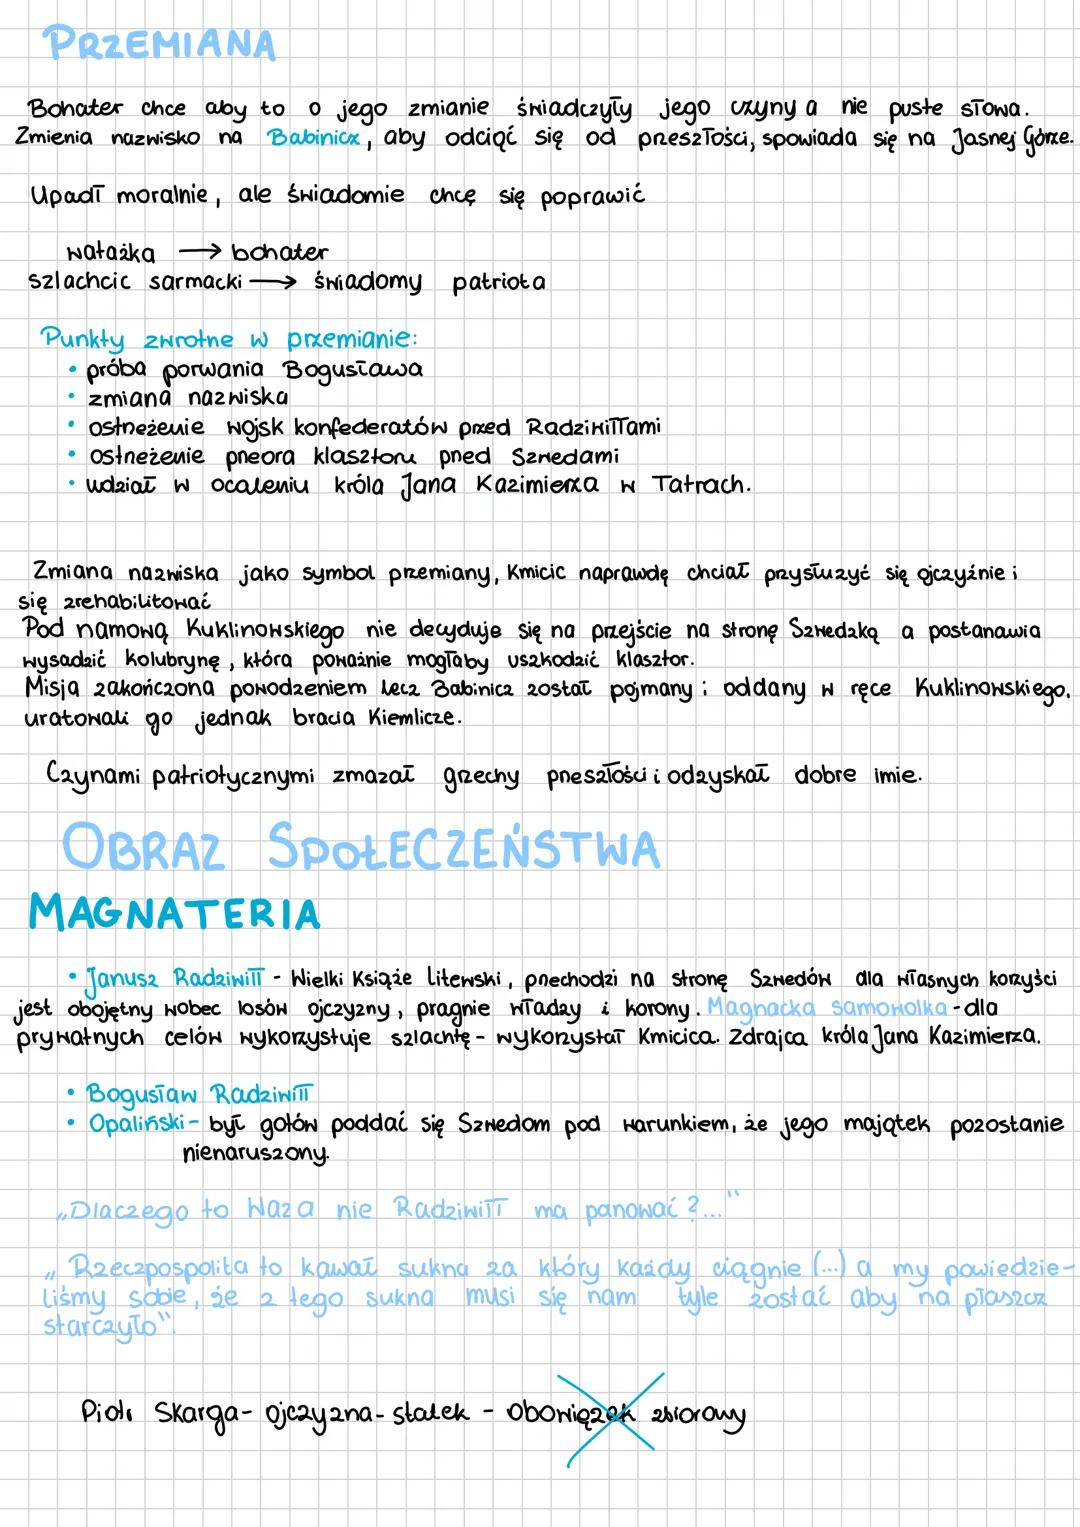 PRZEMIANA
Bohater chce aby to o jego zmianie świadczyły jego czyny a nie puste słowa.
Zmienia nazwisko na Babinicz, aby odciąć się od przeszłości, spowiada się na Jasnej Górze.
Upadł moralnie, ale świadomie chcę się poprawić
watażka → bohater
szlachcic sarmacki → świadomy patriota
Punkty zwrotne w przemianie:
• próba porwania Bogusława
• zmiana nazwiska
• ostrzeżenie wojsk konfederatów przed Radziwiłłami
• ostrzeżenie przeora klasztoru przed Szwedami
• udział w ocaleniu króla Jana Kazimierza w Tatrach.
Zmiana nazwiska jako symbol przemiany, Kmicic naprawdę chciał przysłużyć się ojczyźnie i
się zrehabilitować
Pod namową Kuklinowskiego nie decyduje się na przejście na stronę Szwedzką a postanawia
wysadzić kolubrynę, która poważnie mogłaby uszkodzić klasztor.
Misja zakończona powodzeniem lecz Babinicz został pojmany i oddany w ręce Kuklinowskiego,
uratowali go jednak bracia Kiemlicze.
Czynami patriotycznymi zmazał grzechy przeszłości i odzyskał dobre imie.
OBRAZ SPOŁECZEŃSTWA
MAGNATERIA
• Janusz Radziwiłł - Wielki Książe litewski, przechodzi na stronę Szwedów dla własnych korzyści
jest obojętny wobec losów ojczyzny, pragnie władzy i korony. Magnacka samowolka - dla
prywatnych celów wykorzystuje szlachtę - wykorzystał Kmicica. Zdrajca króla Jana Kazimierza.
• Bogusław Radziwiłł
• Opaliński - był gotów poddać się Szwedom pod warunkiem, że jego majątek pozostanie
nienaruszony.
„Dlaczego to Waza nie Radziwiłł ma panować?..."
„Rzeczpospolita to kawał sukna za który każdy ciągnie (...) a my powiedzie-
liśmy sobie, że z tego sukna musi się nam tyle zostać aby na płaszcz
starczyło".
Piotr Skarga - ojczyzna - statek - obowiązek zbiorowy